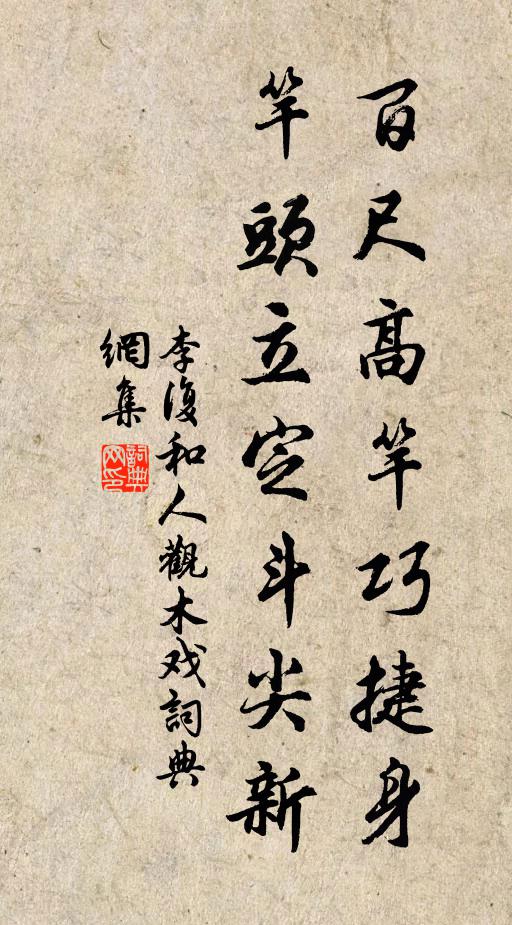 百尺高竿巧捷身
竿頭立定斗尖新
李復和人觀木戏詞典
網集
詞典
网印